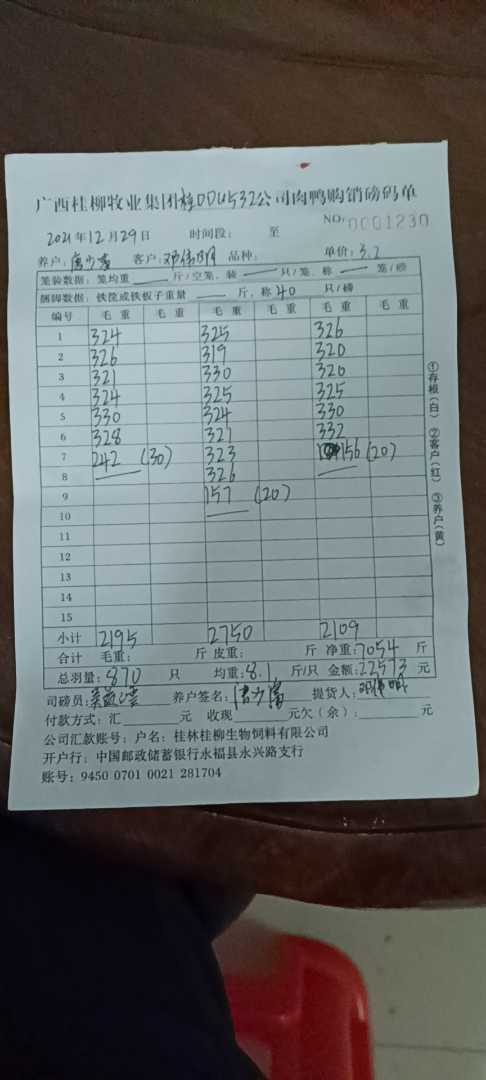 广西桂柳牧业集团桂DDU532公司肉鸭购销磅码单
NO: 0001230
2021年12月29日 时间段: 至
养户: 客户: 邓伟明 品种: 单价: 3.2
笼装数据: 笼均重 斤/空笼、装 只/笼、称 笼/磅
捆脚数据: 铁筐或铁板子重量 斤, 称40 只/磅
编号 毛重 毛重 毛重 毛重 毛重 毛重
1 324 325 326
2 326 319 320
3 321 330 320
4 324 325 325
5 330 324 330
6 328 321 332
7 242 (30) 323 156 (20)
8 326
9 157 (20)
10
11
12
13
14
15
小计 2195 2750 2109
合计 毛重: 斤 皮重: 斤 净重: 7054 斤
总羽量: 870 只 均重: 8.1 斤/只 金额: 22573 元
司磅员: 养户签名: 提货人: 邓伟明
付款方式: 汇 元 收现 元欠(余): 元
公司汇款账号: 户名: 桂林桂柳生物饲料有限公司
开户行: 中国邮政储蓄银行永福县永兴路支行
账号: 9450 0701 0021 281704
①存根(白) ②客户(红) ③养户(黄)